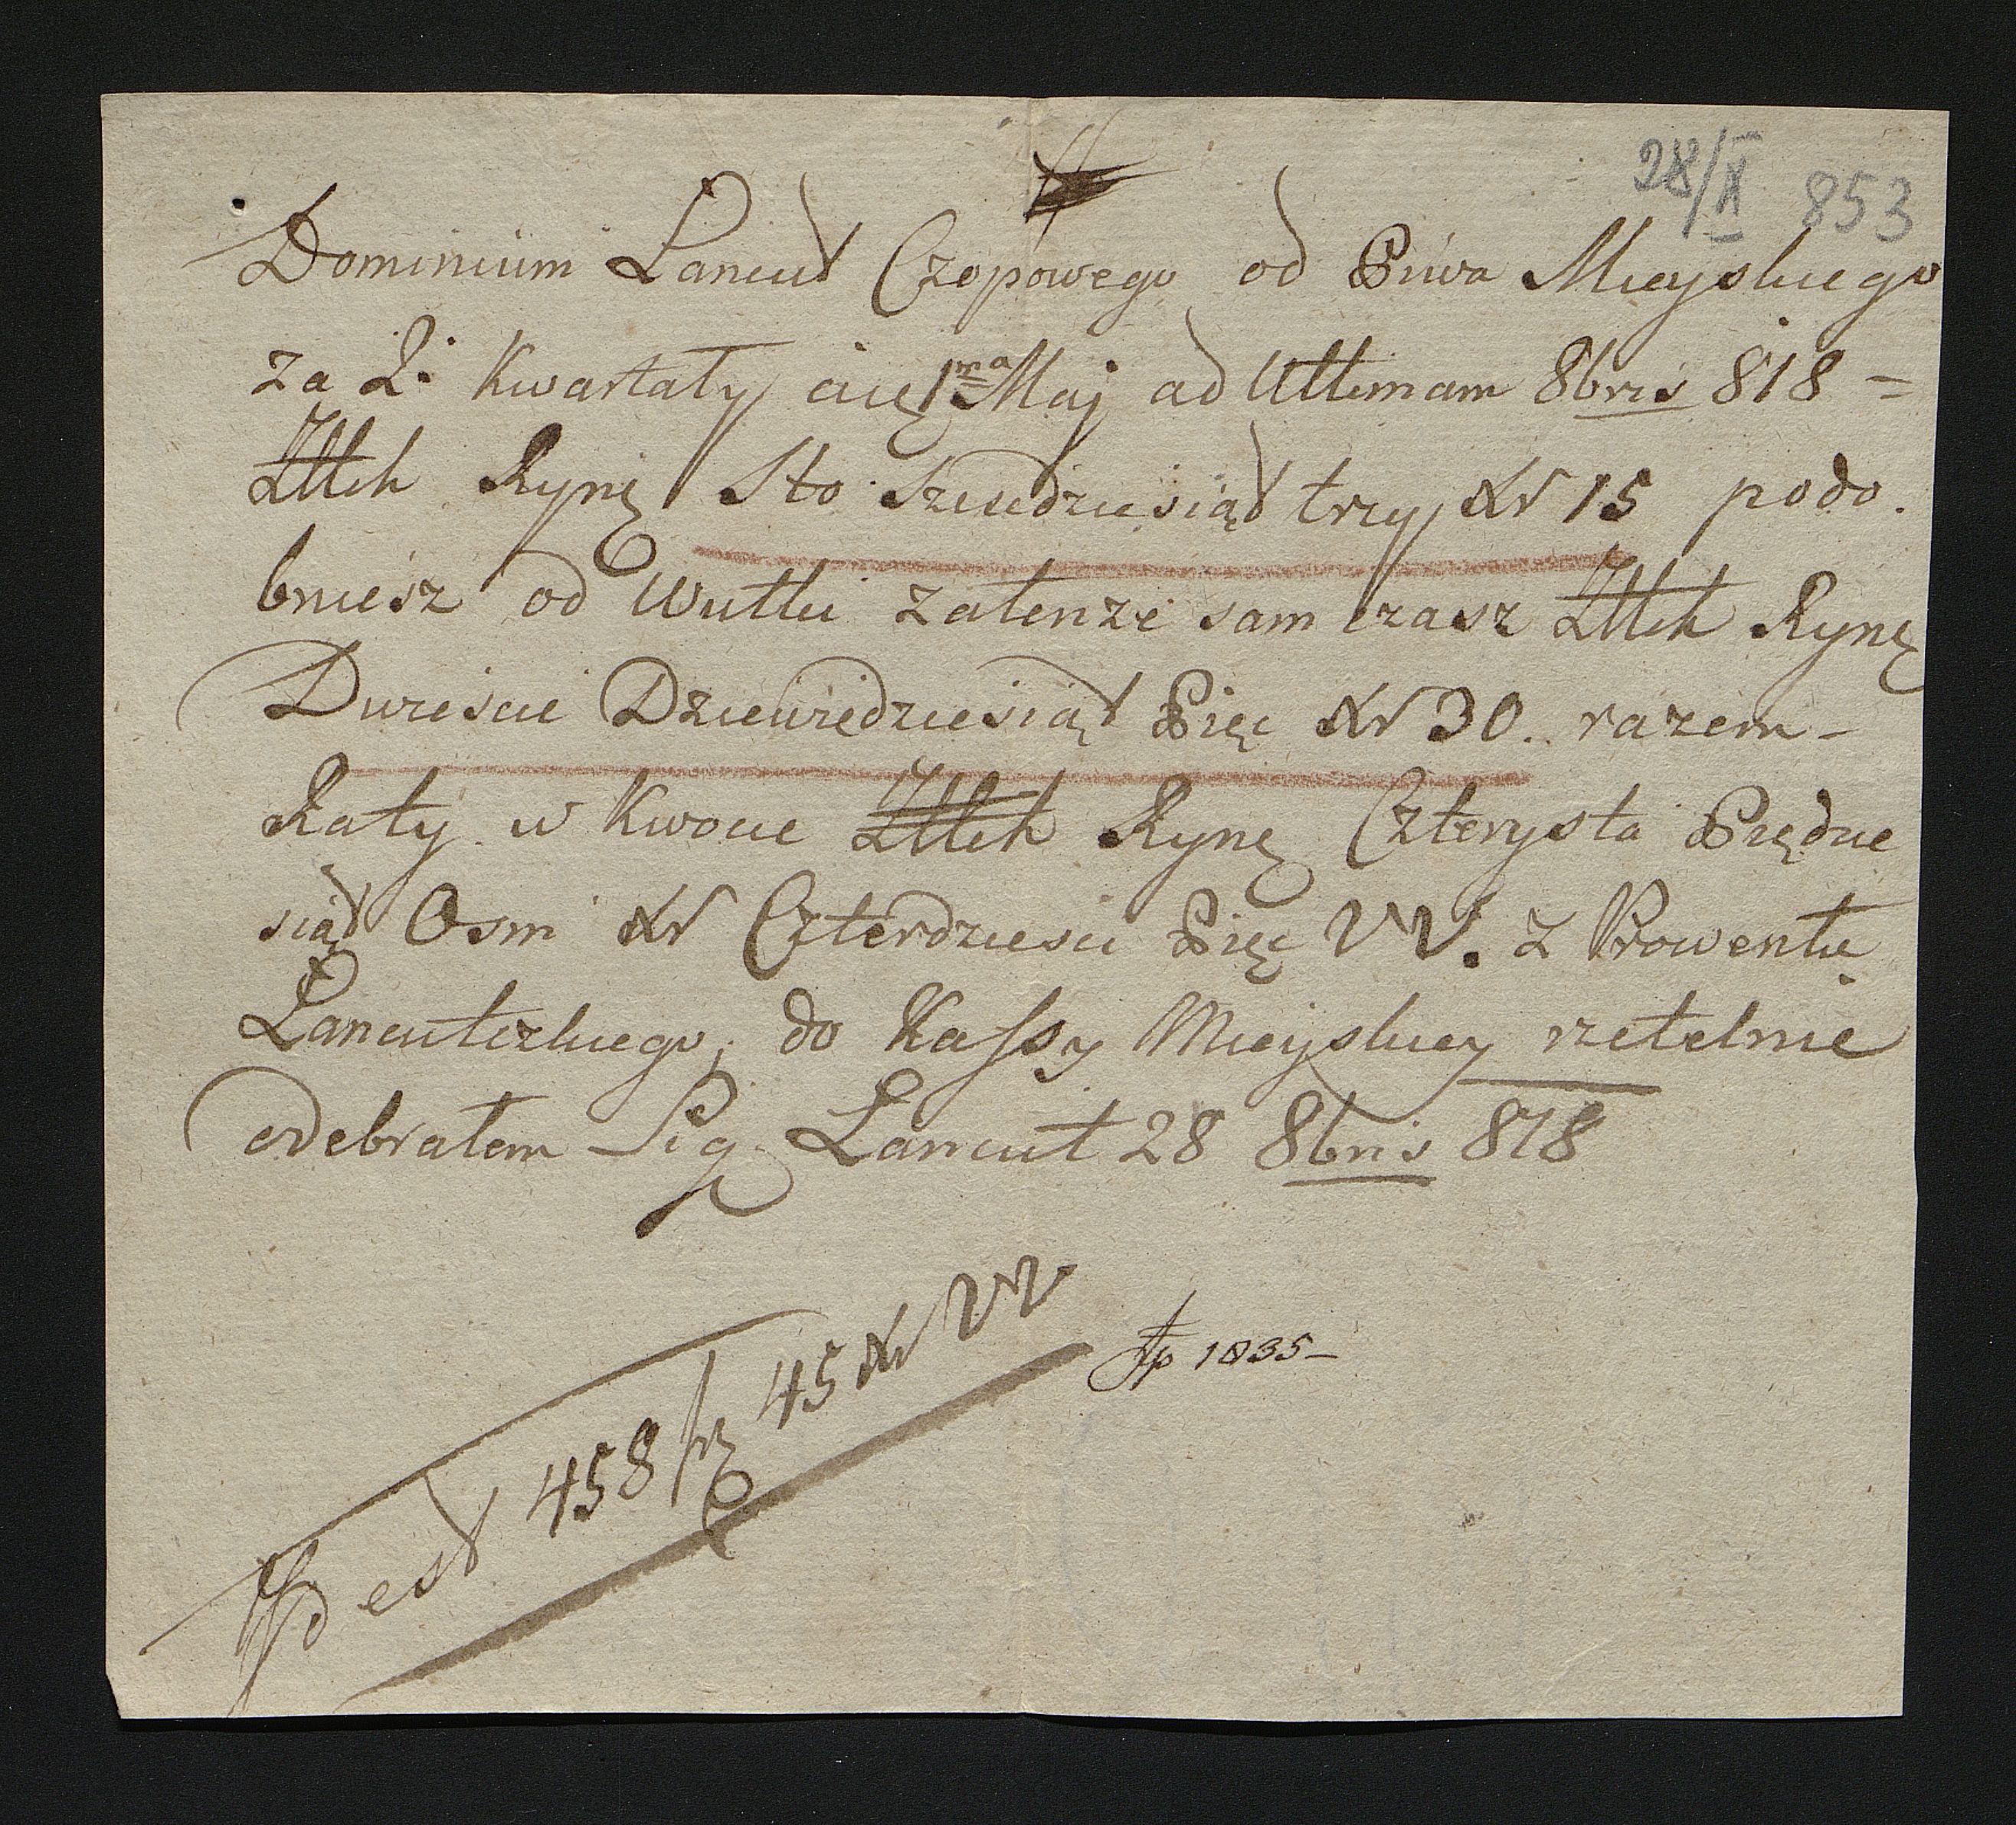 28/X 853
Dominium Lancut Czopowego od Piwa Mieyskiego
za 2: Kwartały 1ma Maj ad Ultimam 8bris 818 =
Złłch Rynę Sto Szesdziesiąt trzy Xr 15 podo.
bniesz od Wutki zatenże sam czasz Złłch Rynę
Dwiescie Dziewiedziesiąt Pięc Xr 30. razem -
Raty w Kwocie Złłch Rynę Czterysta Piędzie
siąt Osm Xr Czterdziesci Pięc W. z Prowentu
Lancutczkiego, do Kassy Mieyskiey rzetelnie
odebrałem Sig Lancut 28 8bris 818
est 458 fr 45 Xr W
1835 -